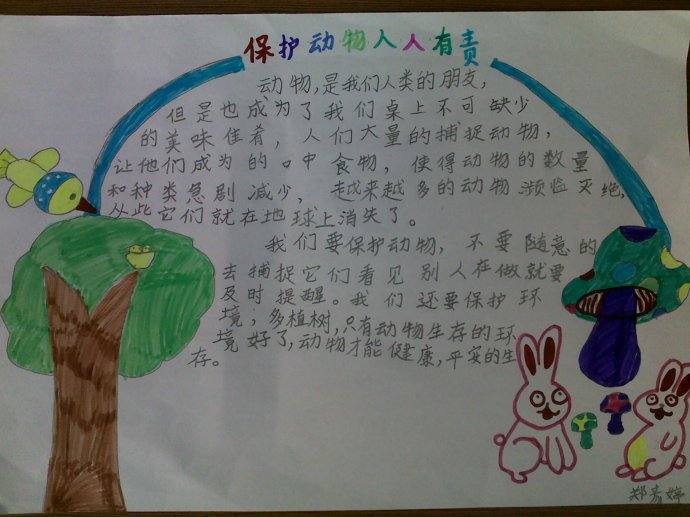 保护动物人人有责
动物,是我们人类的朋友,
但是也成为了我们桌上不可缺少
的美味佳肴,人们大量的捕捉动物,
让他们成为的口中食物,使得动物的数量
和种类急剧减少,越来越多的动物濒临灭绝,
从此它们就在地球上消失了。
我们要保护动物,不要随意的
去捕捉它们看见别人在做就要
及时提醒。我们还要保护环
境,多植树,只有动物生存的环
境好了,动物才能健康,平安的生
存。